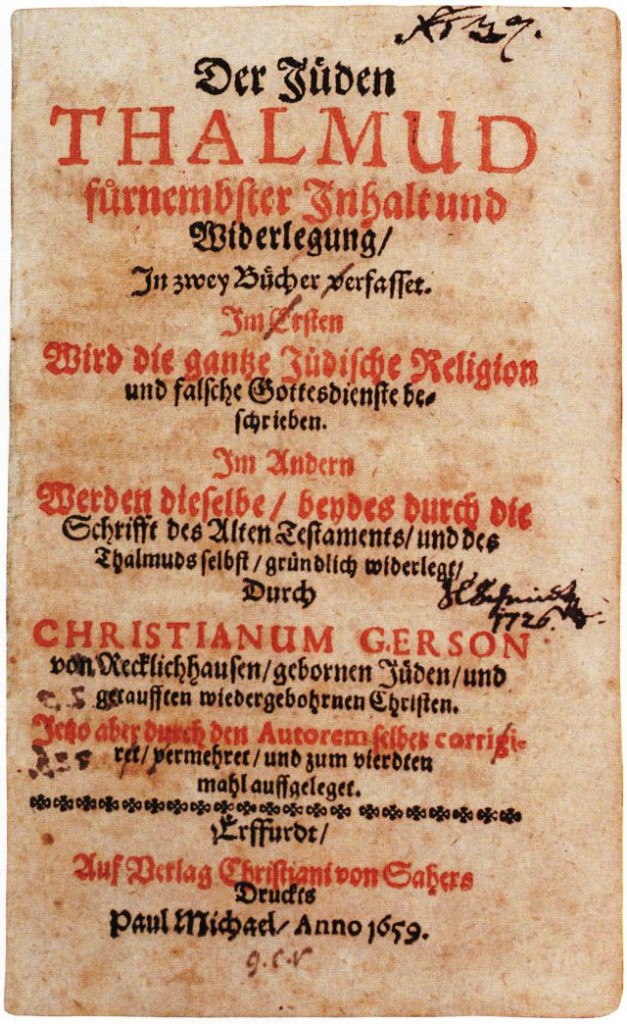 Der Jüden
THALMUD
fůrnembster Inhalt und
Widerlegung/
In zwey Bücher verfasset.
Im Ersten
Wird die gantze Jüdische Religion
und falsche Gottesdienste be-
schrieben.
Im Andern
Werden dieselbe/ beydes durch die
Schrifft des Alten Testaments/ und des
Thalmuds selbst/ gründlich widerlegt/
Durch
1726.
CHRISTIANUM GERSON
von Recklichhausen/ gebornen Jüden/ und
getaufften wiedergebohrnen Christen.
Jetzo aber durch den Autorem selber corrigi-
ret/ vermehret/ und zum vierdten
mahl auffgeleget.
Erffurdt/
Auf Verlag Christiani von Sahers
Druckts
Paul Michael/ Anno 1659.